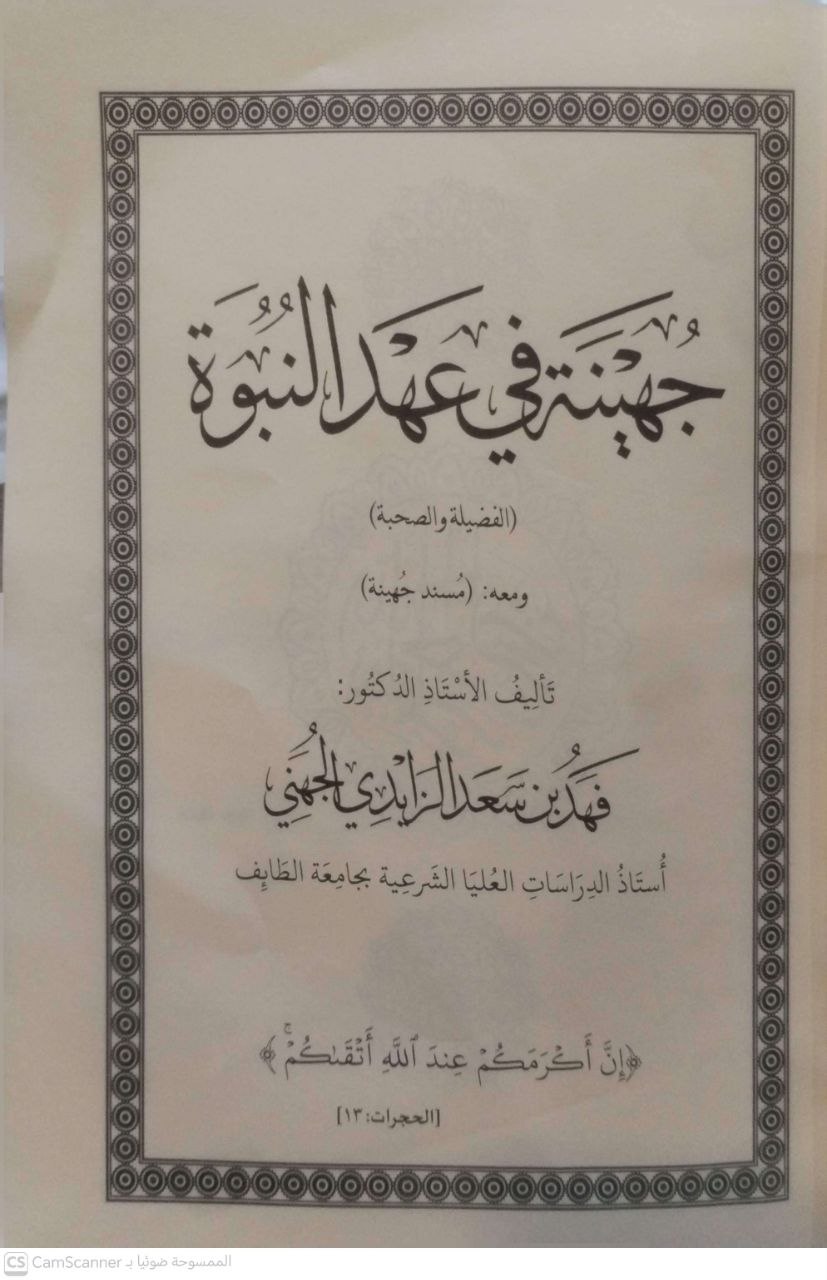 جُهَيْنَة في عَهْد النُبُوَة
(الفضيلة والصحبة)
ومعه: (مُسند جُهينة)
تَألِيفُ الأسْتَاذِ الدُكتُور:
فَهَدُ بن سَعَد الزَايْدِي الجُهَنِي
أُستَاذُ الدِرَاسَاتِ العُليَا الشَرعِية بجَامِعَة الطَائِف
﴿إِنَّ أَكْرَمَكُمْ عِندَ ٱللَّهِ أَتْقَىٰكُمْ ۚ﴾
[الحجرات: ١٣]
CS CamScanner الممسوحة ضوئيا بـ